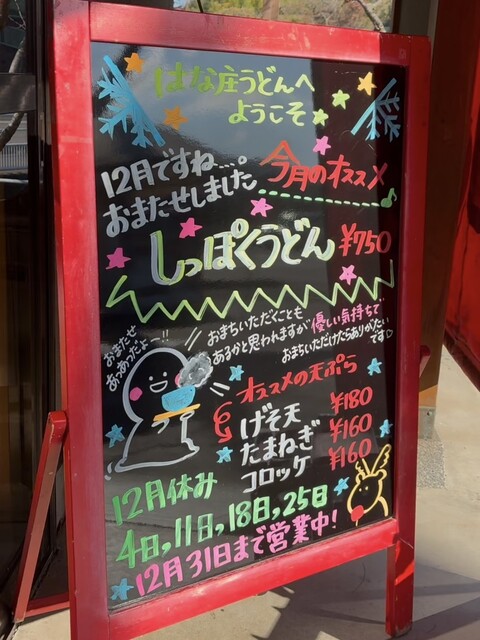 はな庄うどんへ
ようこそ
12月ですね…。
おまたせしました
今月のオススメ
しっぽくうどん ¥750
おまたせ
あっあっだよー!!
おまちいただくことも
あるかと思われますが優しい気持ちで
おまちいただけたらありがたい
です♡
オススメの天ぷら
げそ天 ¥180
たまねぎ ¥160
コロッケ ¥160
12月休み
4日,11日,18日,25日
12月31日まで営業中!